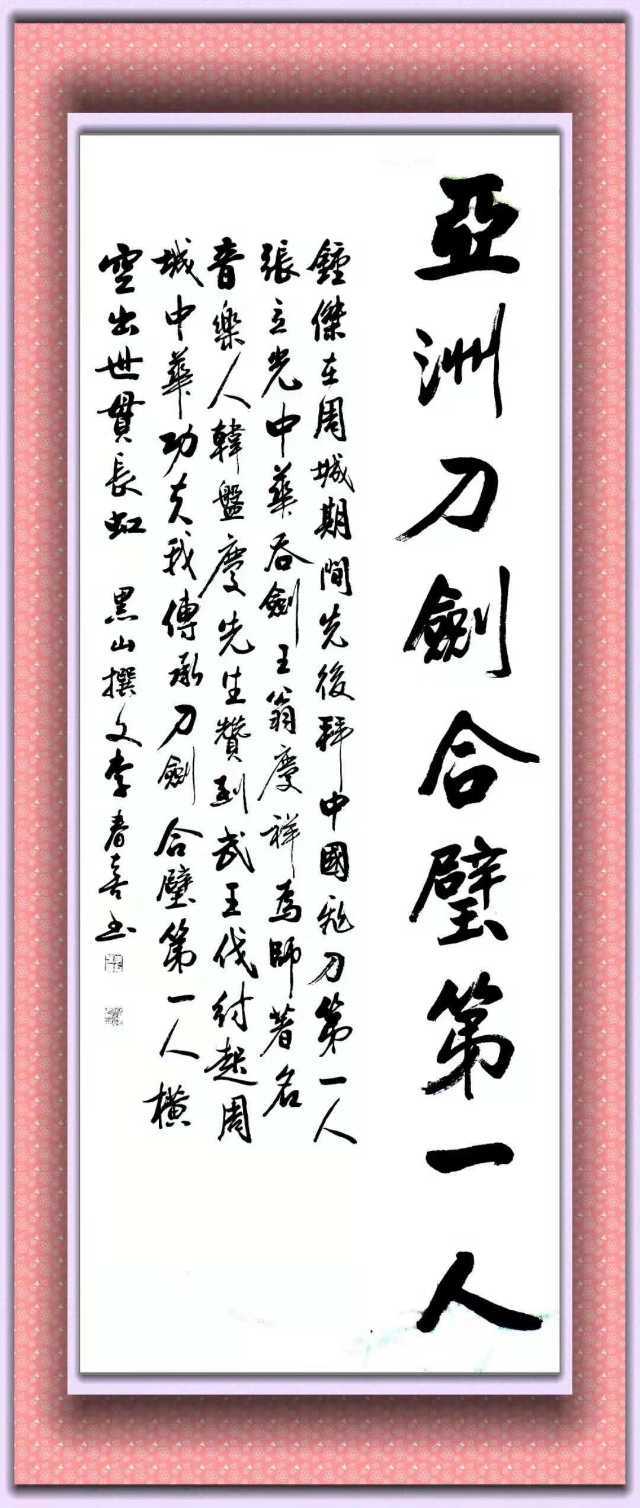 亞洲刀劍合璧第一人
鍾傑在周城期間先後拜中國彪刀第一人
張立光中華吞劍王翁慶祥為師著名
音樂人韓盤慶先生贊到武王伐紂起周
城中華功夫我傳承刀劍合璧第一人橫
空出世貫長虹 黑山撰文李春喜书